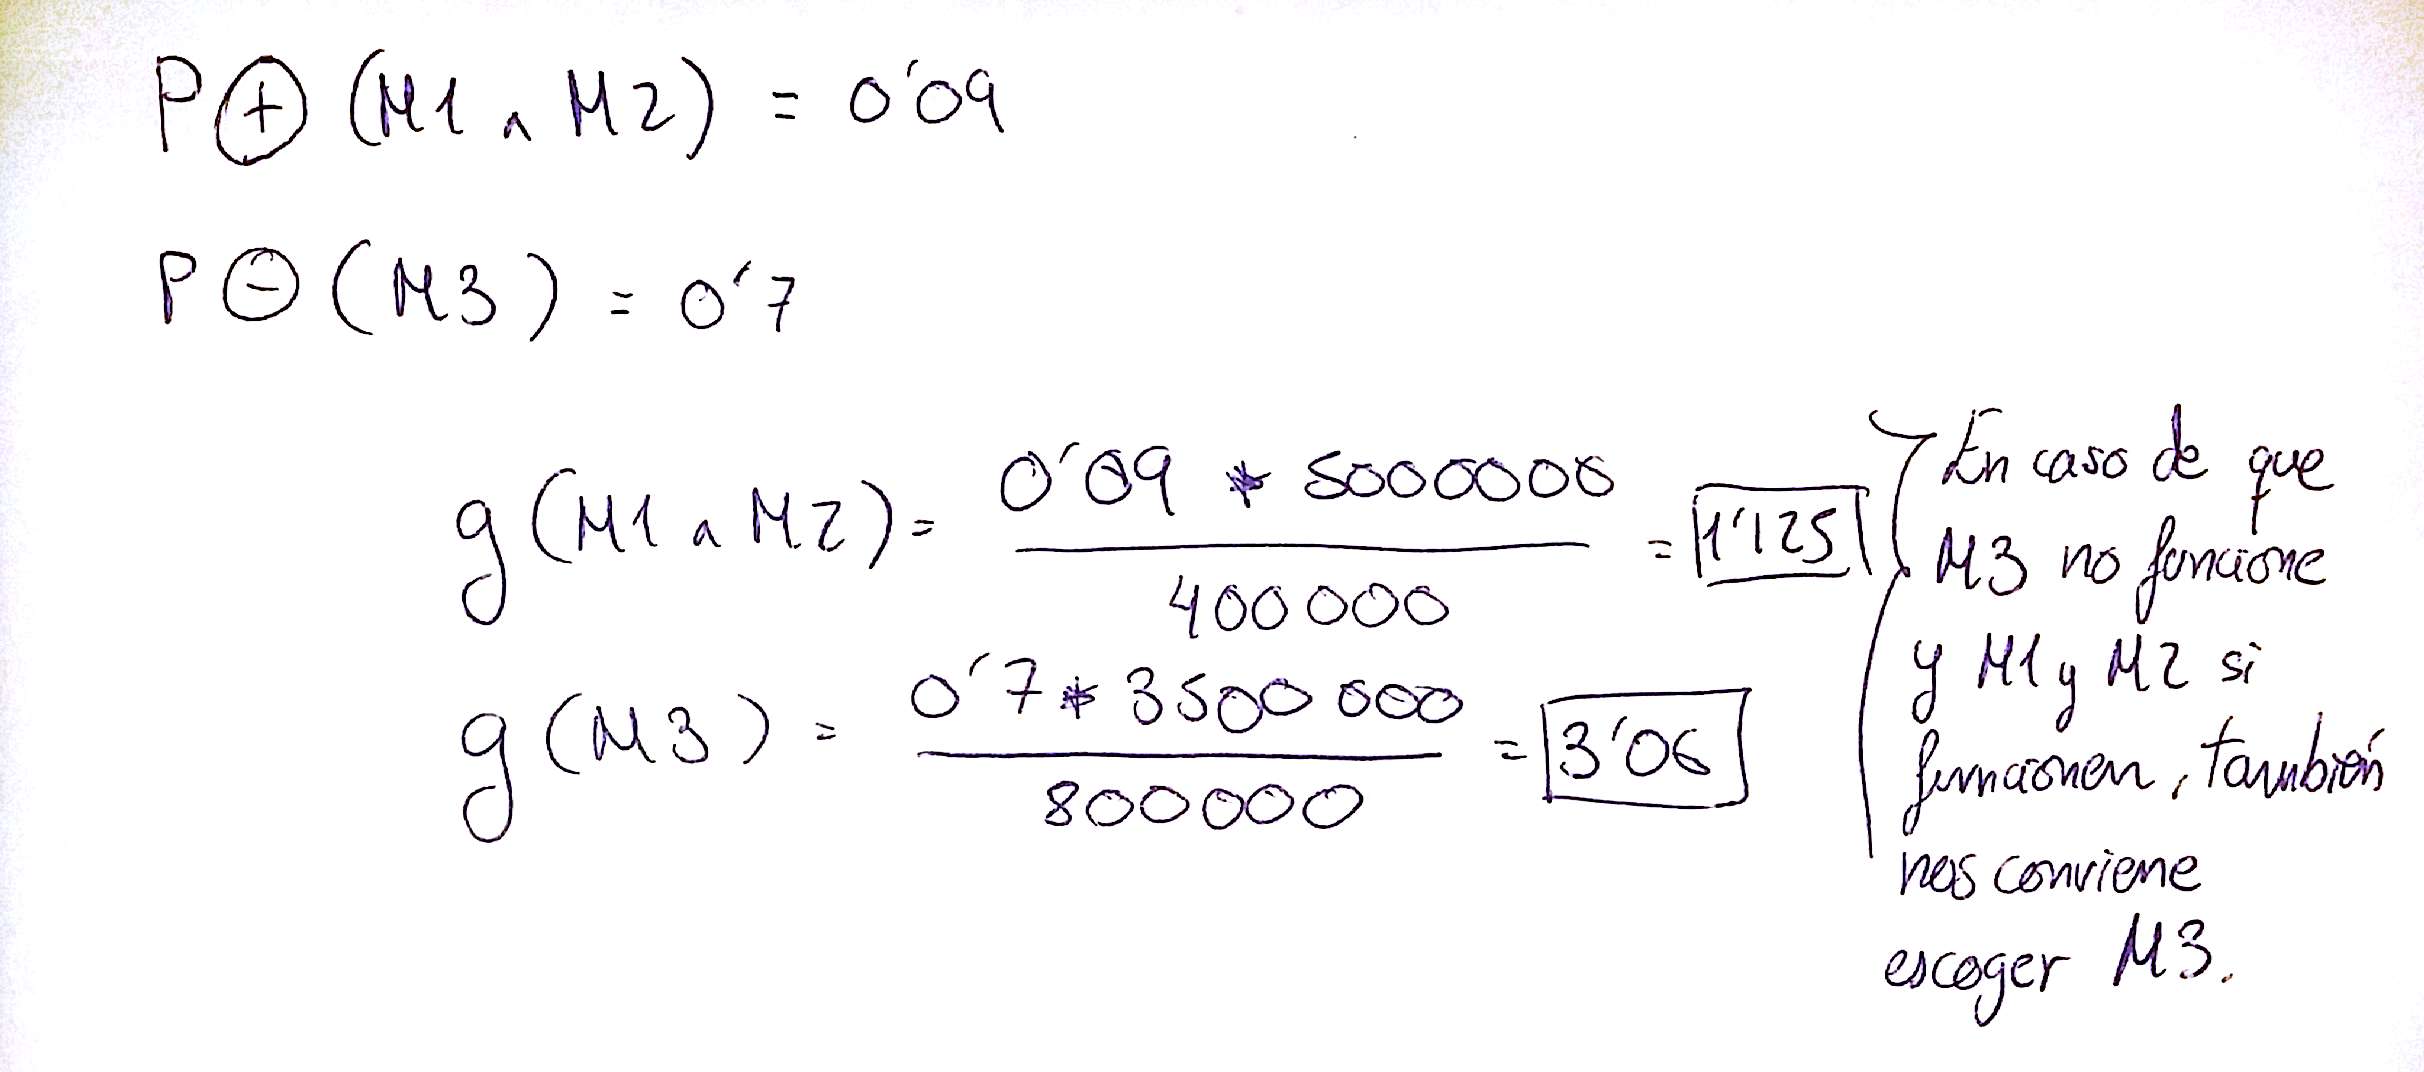 P⊕ (M1 ∧ M2) = 0'09
P⊖ (M3) = 0'7
g(M1 ∧ M2) = 0'09 * 5000000 / 400000 = 1'125
g(M3) = 0'7 * 3500000 / 800000 = 3'06
En caso de que
M3 no funcione
y M1 y M2 si
funcionen, también
nos conviene
escoger M3.